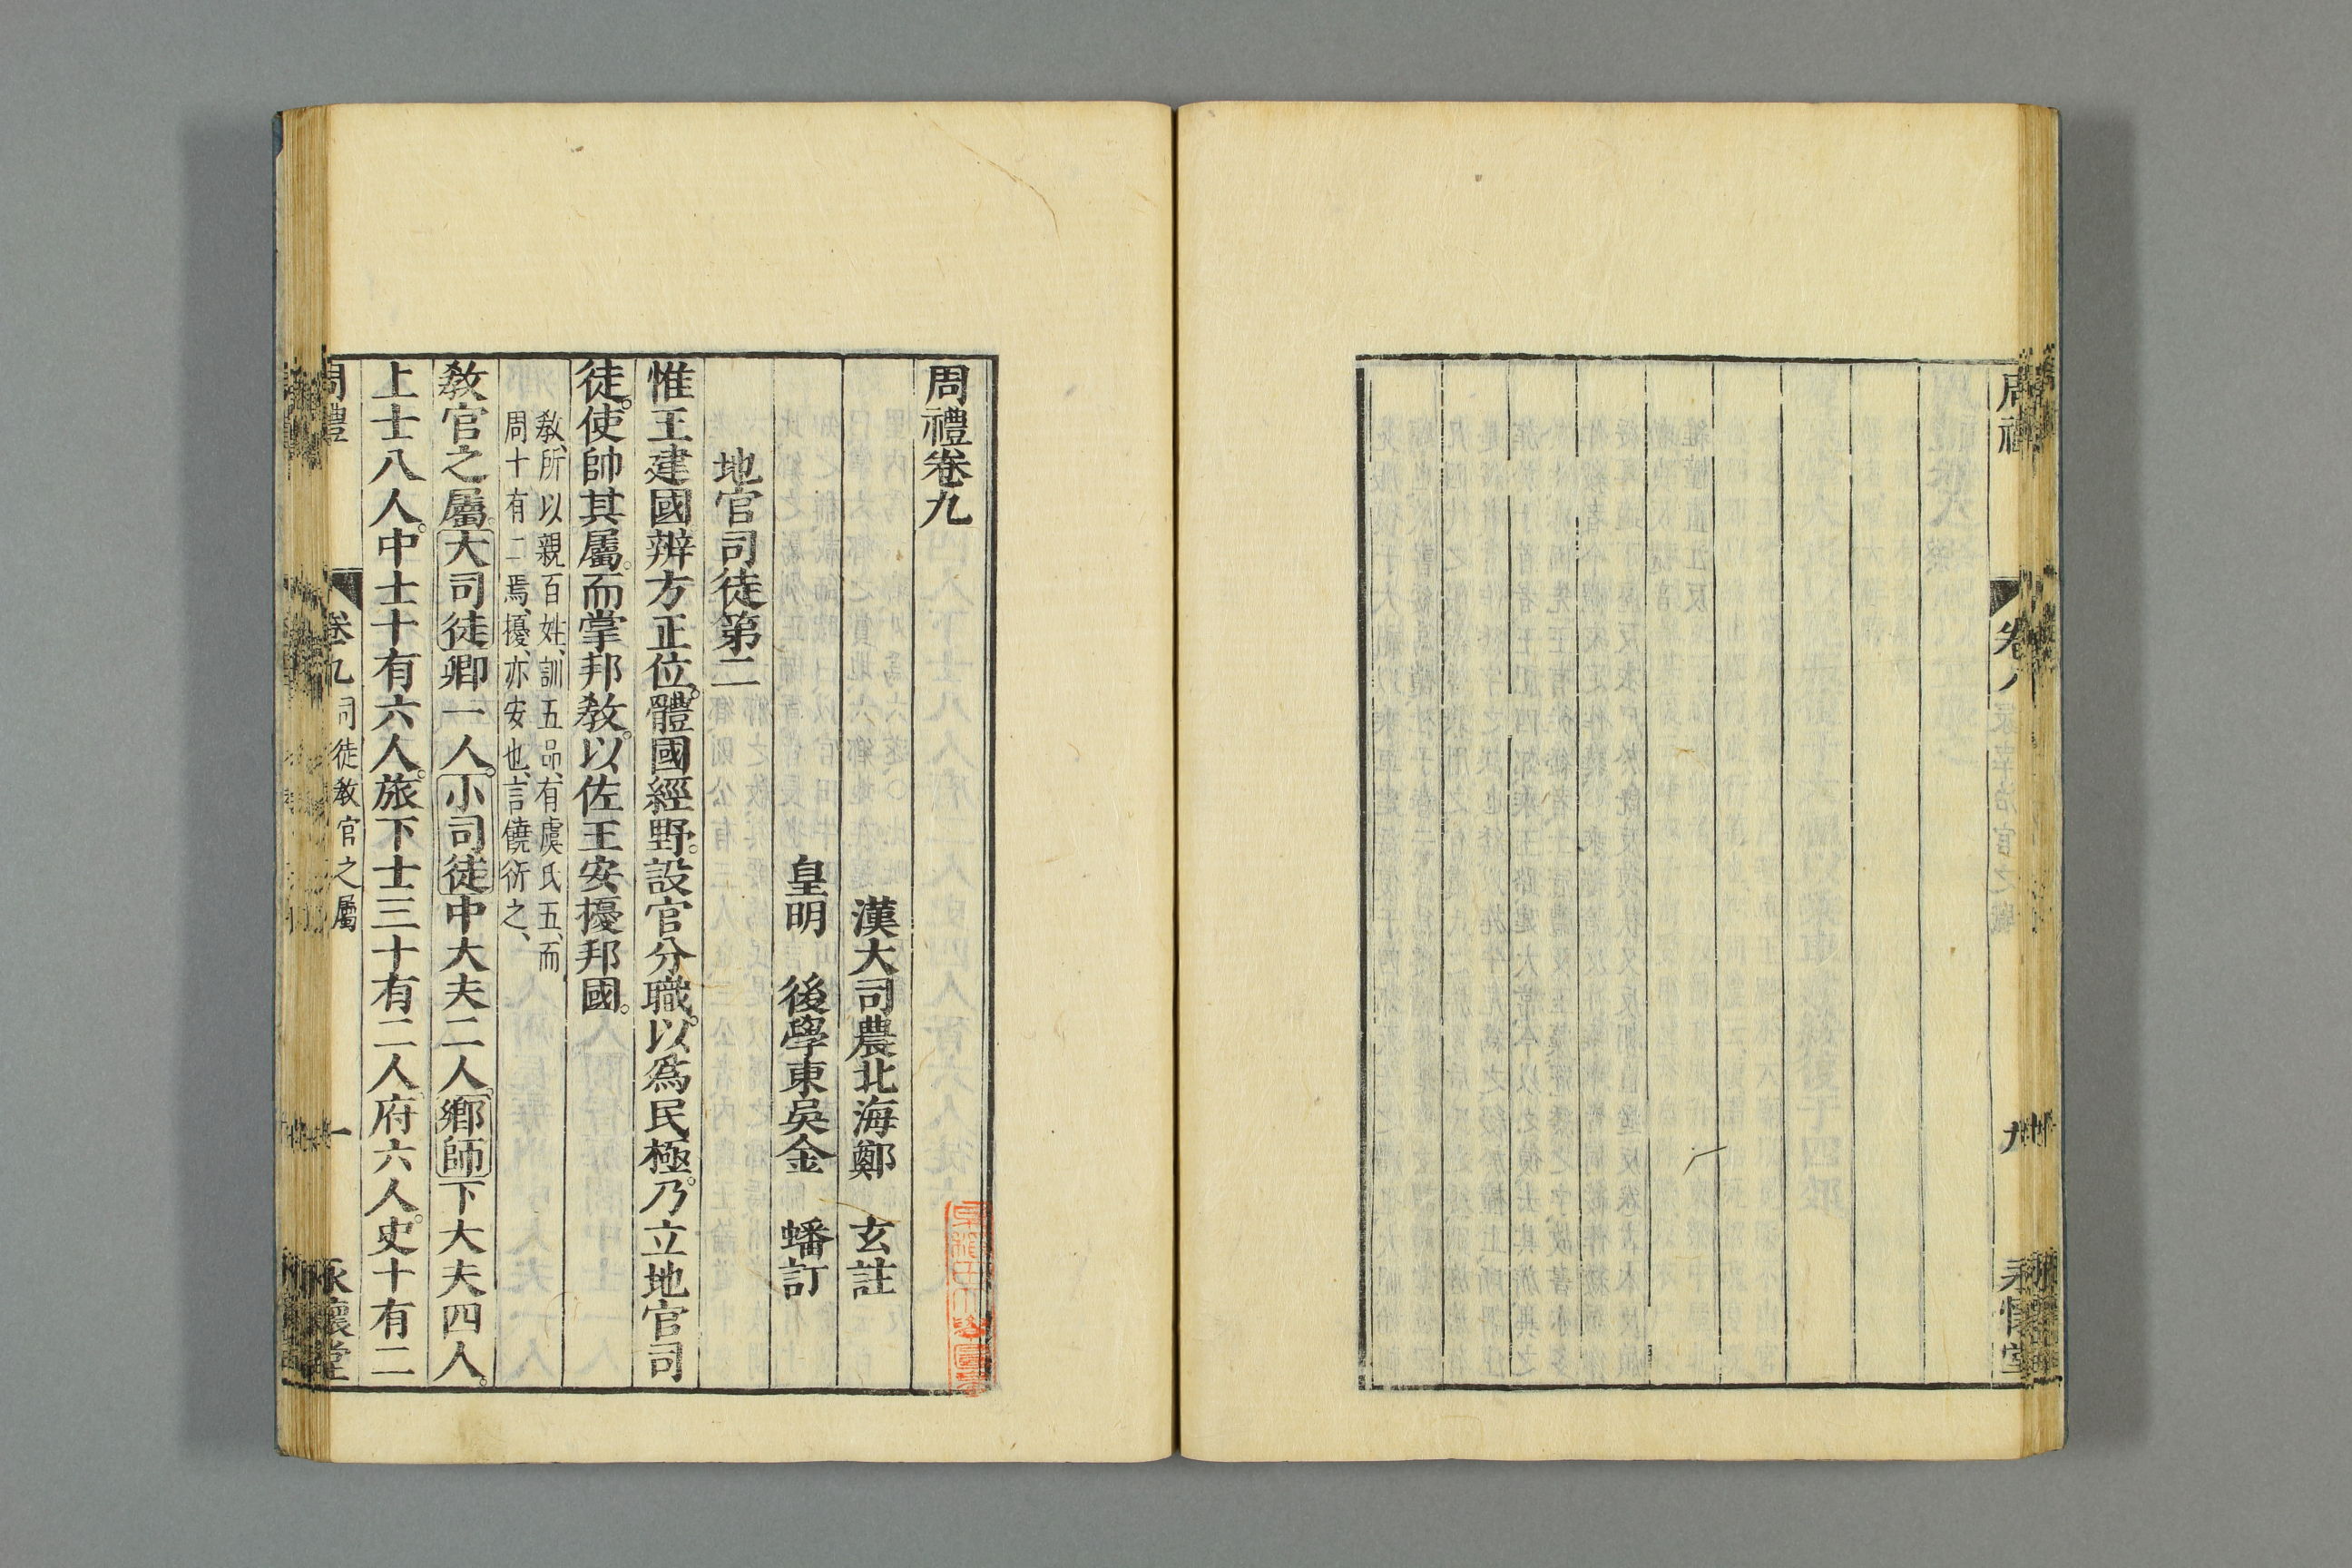 周禮卷九
漢大司農北海鄭　玄註
皇明　後學東吳金　蟠訂
地官司徒第二
惟王建國。辨方正位。體國經野。設官分職。以爲民極。乃立地官司
徒。使帥其屬。而掌邦敎。以佐王安擾邦國。
敎、所以親百姓、訓五品、有虞氏五、而
周十有二焉、擾、亦安也、言饒衍之、
敎官之屬。大司徒卿一人。小司徒中大夫二人。鄉師下大夫四人。
上士八人。中士十有六人。旅下士三十有二人。府六人。史十有二
周禮　卷九　司徒敎官之屬　一　永懷堂